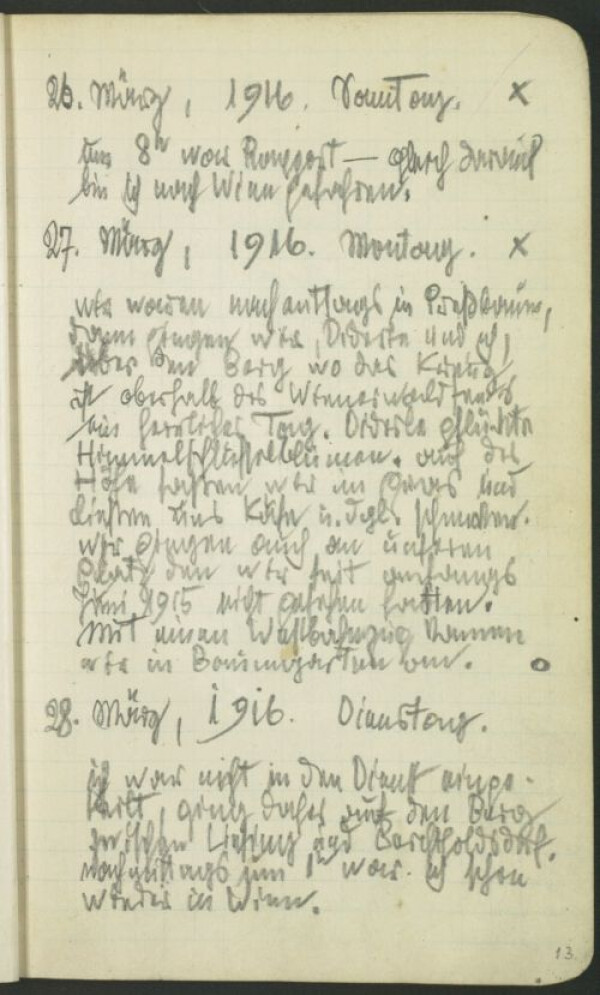 26. März, 1916. Sonntag. x
Um 8h war Rapport — gleich darauf
bin ich nach Wien gefahren.
27. März, 1916. Montag. x
wir waren nachmittags in Preßbaum,
dann gingen wir, Diderle und ich,
über den Berg wo das Kreuz
ist oberhalb des
ein herrlicher Tag. Diderle pflückte
Himmelschlüsselblumen. auf der
Höhe saßen wir im Gras und
ließen uns Käse u. dgl. schmecken.
wir gingen auch an unseren
Platz den wir seit anfangs
Juni 1915 nicht gesehen hatten.
Mit einem Westbahnzug kamen
wir in Baumgarten an. o
28. März, 1916. Dienstag.
ich war nicht in den Dienst einge-
teilt, ging daher auf den Berg
zwischen Liesing und Berchtholdsdorf.
nachmittags um 1h war ich schon
wieder in Wien.
13.